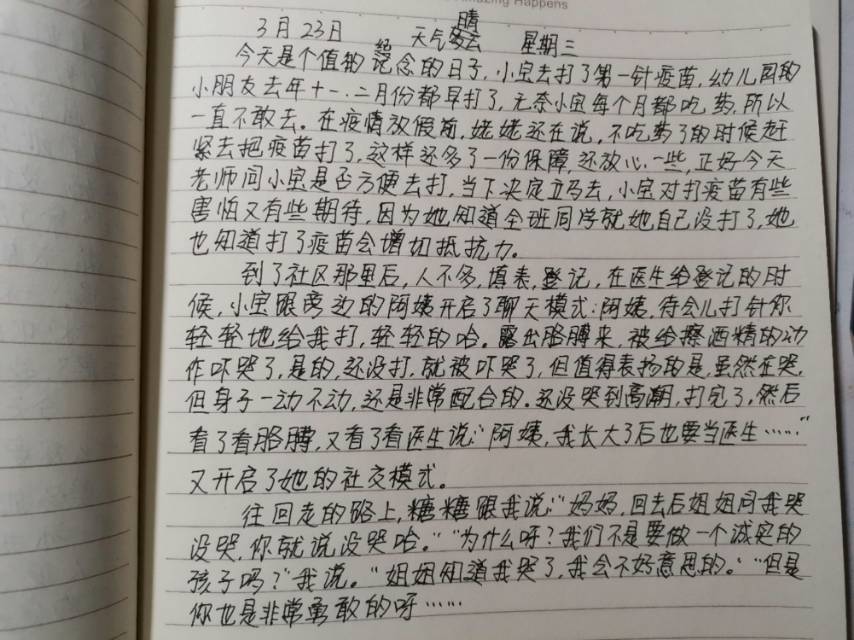 Amazing Happens
3月23日 天气多云 晴 星期三
今天是个值的纪念的日子,小宝去打了第一针疫苗,幼儿园的
小朋友去年十一.二月份都早打了,无奈小宝每个月都吃药,所以
一直不敢去。在疫情放假前,姥姥还在说,不吃药了的时候赶
紧去把疫苗打了,这样还多了一份保障,还放心一些,正好今天
老师问小宝是否方便去打,当下决定立马去,小宝对打疫苗有些
害怕又有些期待,因为她知道全班同学就她自己没打了,她
也知道打了疫苗会增加抵抗力。
到了社区那里后,人不多,填表,登记,在医生给登记的时
候,小宝跟旁边的阿姨开启了聊天模式:阿姨,待会儿打针你
轻轻地给我打,轻轻的哈。露出胳膊来,被给擦酒精的动
作吓哭了,是的,还没打,就被吓哭了,但值得表扬的是,虽然在哭,
但身子一动不动,还是非常配合的。还没哭到高潮,打完了,然后
看了看胳膊,又看了看医生说:“阿姨,我长大了后也要当医生……”
又开启了她的社交模式。
往回走的路上,糖糖跟我说:“妈妈,回去后姐姐问我哭
没哭,你就说没哭哈。”“为什么呀?我们不是要做一个诚实的
孩子吗?”我说。“姐姐知道我哭了,我会不好意思的。”“但是
你也是非常勇敢的呀……